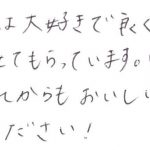 は大好きで良く
てもらっています。
からもおいしい
ださい!